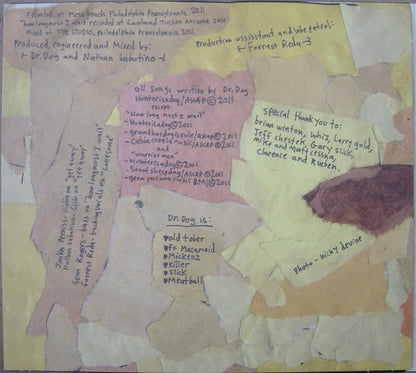 recorded at Meth Beach, Philadelphia Pennsylvania 2011
"How long must I wait" recorded at Loveland Tucson Arizona 2010
Mixed at THE STUDIO, Philadelphia Pennsylvania 2011
Produced, engineered and Mixed by:
Dr. Dog and Nathan Sabatino
Production assistant and vibe patrol:
Forrest Reda
all songs written by Dr. Dog.
Hunterisadog/ASCAP ©2011
except
"How long must I wait"
- Hunterisadog©2011
- groundhordgisrule/ascap©2011
- Cabin create Music/ASCAP©2011
and
"Warrior man"
- Hunterisadog©2011
- Sound sheep dog/ASCAP©2011
- music BMI©2011
special thank you to:
brian winton, whiz, larry gold,
Jeff chestek, Gary slick,
mike and matt cessna,
clarence and Rueben.
violin on "get away"
cello on "get away"
Sean Rogers - bass on "how long must I wait"
Forrest Reda - backing vocals on
Dr. Dog is:
old tober
Fr Macqnaid
Mickenz
Killer
Slick
Meatball
photo - nicky devine